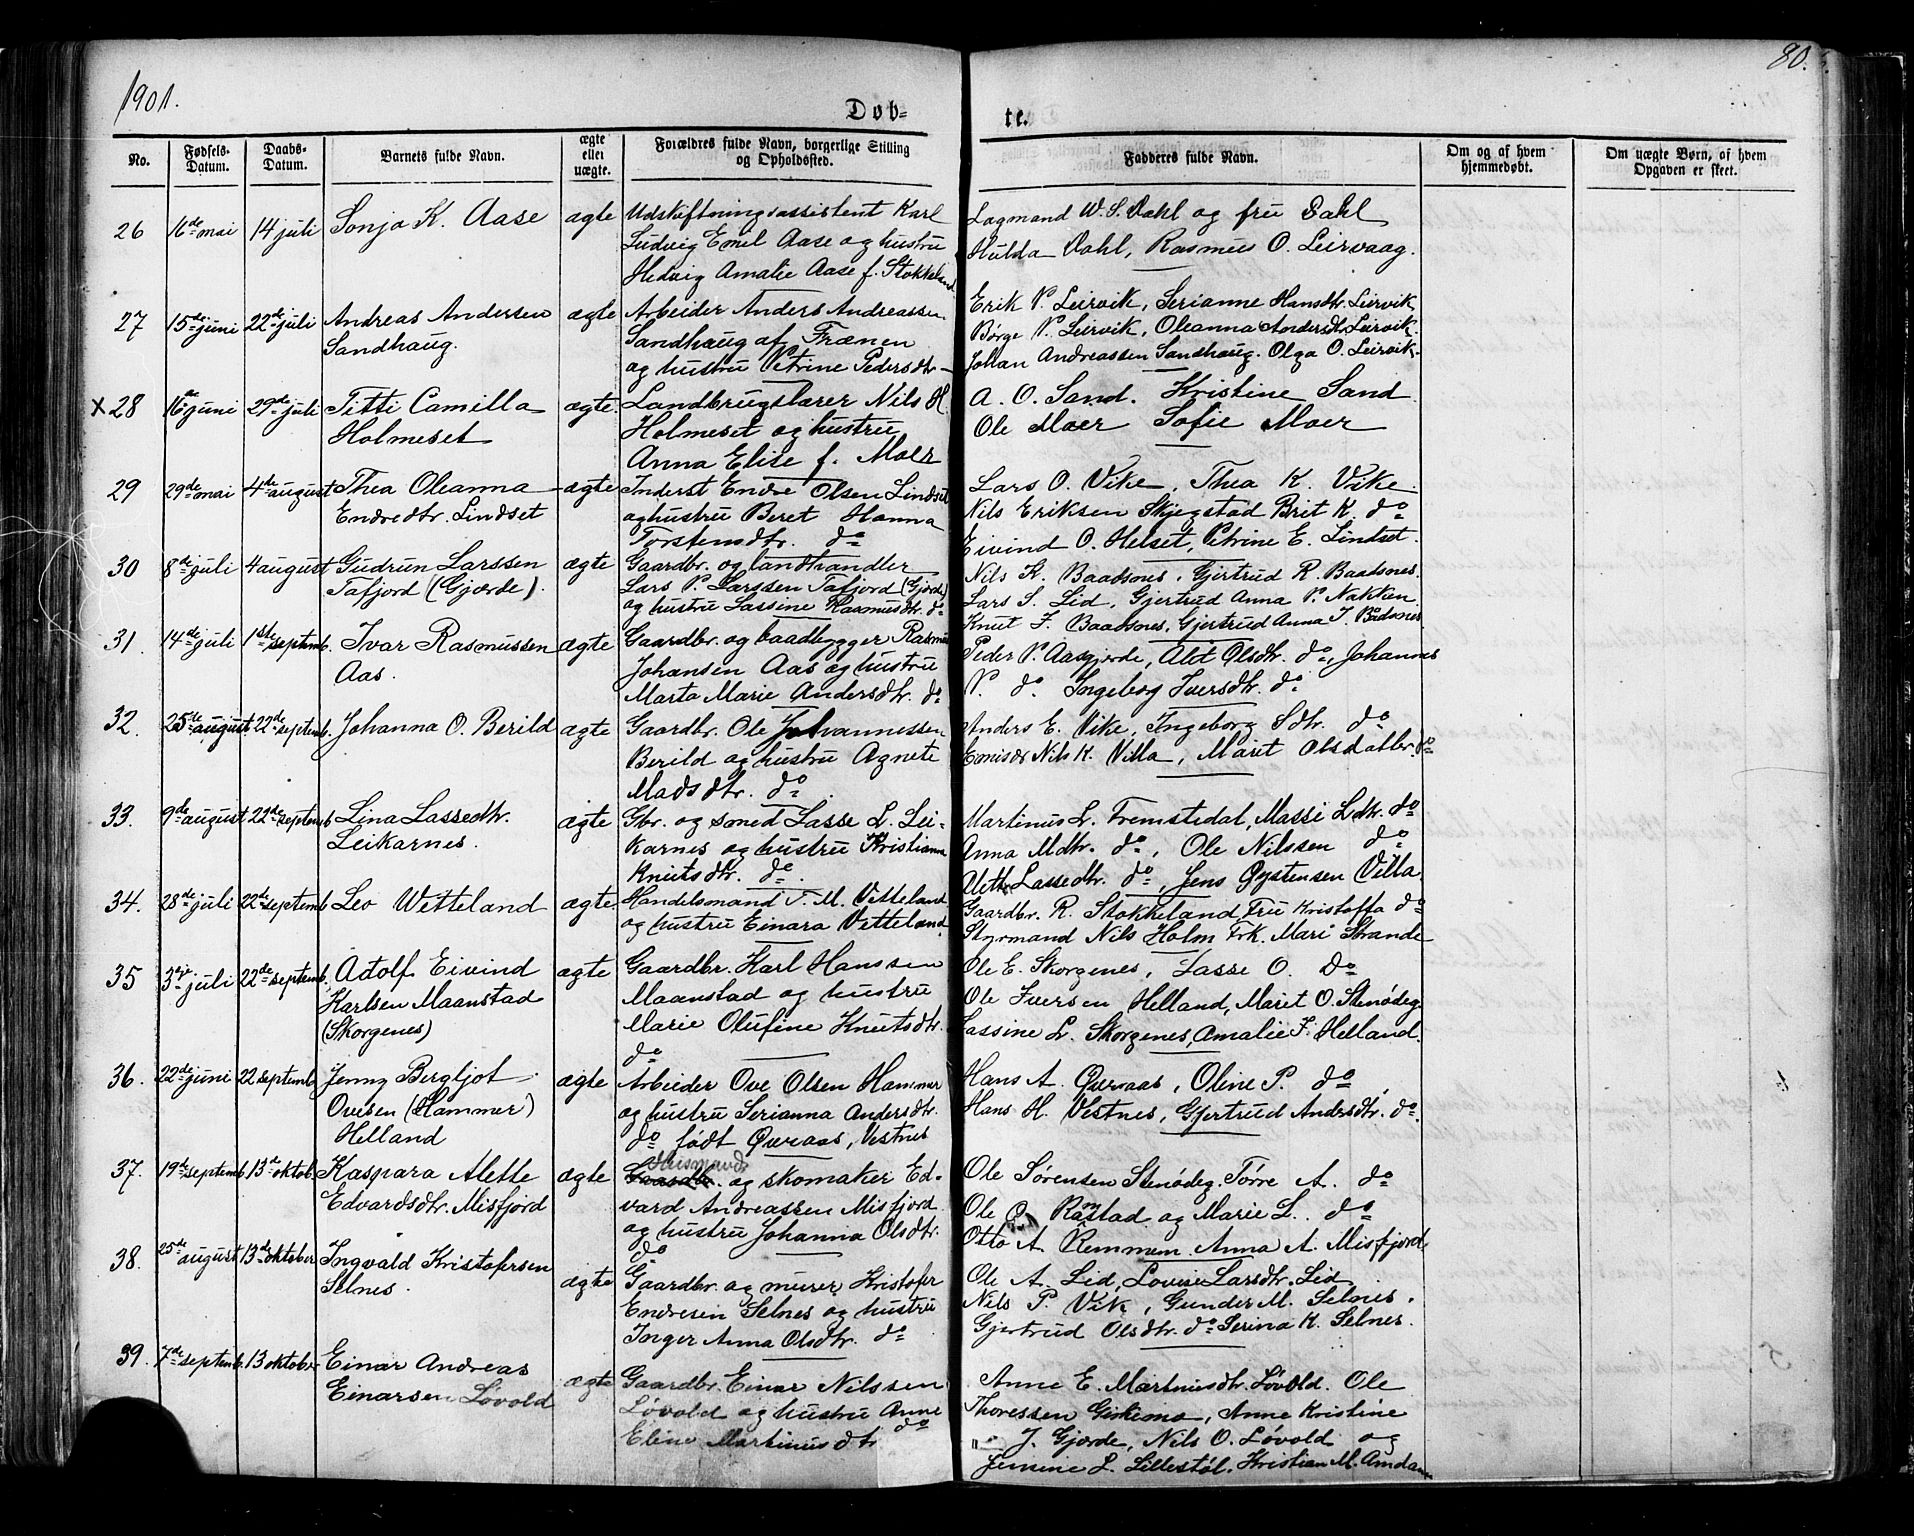 1901.
80.
Døb-
te.
No.
Fødsels-
Datum.
Daabs-
Datum.
Barnets fulde Navn.
ægte
eller
uægte.
Forældres fulde Navn, borgerlige Stilling
og Opholdssted.
Fadderes fulde Navn.
Om og af hvem
hjemmedøbt.
Om uægte Børn, af hvem
Opgaven er skeet.
26 16de mai 14 juli Sonja K. Aase ægte Udskiftningsassistent Karl
Ludvig Emil Aase og hustru
Hedvig Amalie Aase f. Stokkeland
Lagmand W. S. Dahl og fru Dahl
Hulda Dahl, Rasmus O. Leirvaag.
27 15de juni 22de juli Andreas Andersen ægte Arbeider Anders Andreassen
Sandhaug. Sandhaug af Frænen
og hustru Petrine Pedersdtr
Erik P. Leirvik, Serianne Hansdtr. Leirvik
Børge P. Leirvik, Oleanna Andersdtr. Leirvik.
Johan Andreassen Sandhaug. Olga O. Leirvik.
x 28 16de juni 29de juli Titti Camilla ægte. Landbrugslærer Nils H
Holmeset Holmeset og hustru
Anna Elise f. Moer
A. O. Sand. Kristine Sand
Ole Moer Sofie Moer
29 29de mai 4de august Thea Oleanna ægte Inderst Endre Olsen Lindset
Endredtr. Lindset og hustru Beret Hanna
Torstensdtr. do
Lars O. Vike, Thea K. Vike.
Nils Eriksen Skjegstad Brit K. do
Eivind O. Helset, Petrine E. Lindset.
30 8de juli 4 august Gudrun Larssen ægte Gaardbr. og landhandler
Tafjord (Gjærde). Lars P. Larssen Tafjord (Gjærde)
og hustru Lassine Rasmusdtr. do
Nils K. Baadsnes, Gjertrud R. Baadsnes.
Lars S. Lid, Gjertrud Anna P. Nakken
Knut J. Baadsnes, Gjertrud Anna J. Badsnes
31. 14de juli 1ste septemb. Ivar Rasmussen ægte Gaardbr. og baadbygger Rasmus
Aas. Johansen Aas og hustru
Marta Marie Andersdtr. do
Peder P. Aasgjerde, Alet Olsdtr. do, Johannes
P. do. Ingeborg Iversdtr. do
32. 25de august 22de septemb. Johanna O. Berild ægte Gaardbr. Ole Johannessen
Berild og hustru Agnete
Madsdtr. do
Anders E. Vike, Ingeborg Sdtr. do
Nils K. Villa, Maret Olsdatter do
33. 9de august 22de septemb Lina Lassedtr. ægte Gbr. og smed Lasse L. Lei-
Leikarnes. karnes og hustru Kristianna
Knutsdtr. do.
Martinus L. Fremstedal, Massi Ldtr. do
Anna Mdtr. do, Ole Nilssen do
Aleth Lassedtr. do, Jens Øystensen Villa
34. 28de juli 22de septemb Leo Wetteland ægte. Handelsmand T. M. Vetteland
og hustru Einara Vetteland
Gaardbr. R. Stokkeland, Fru Kristoffa do
Styrmand Nils Holm Frk. Mari Strande
35 3dje juli 22de septemb. Adolf Eivind ægte Gaardbr. Karl Hanssen
Karlsen Maanstad Maanstad og hustru
(Skorgenes) Marie Olufine Knutsdtr.
do
Ole E. Skorgenes, Lasse O. Do
Ole Iversen Helland, Maret O. Stenødeg
Lassine L. Skorgenes, Amalie I. Helland.
36. 22de juni 22 septemb Jenny Bergljot ægte Arbeider Ove Olsen Hammer
Ovesen (Hammer) og hustru Serianna Andersdtr.
Helland do født Øveraas, Vestnes
Hans A. Øveraas, Oline P. do
Hans H. Vestnes, Gjertrud Andersdtr. do
37. 19de septemb 13de oktob. Kaspara Alette ægte Husmand Gaardbr. og skomaker Ed-
Edvardsdtr. Misfjord vard Andreassen Misfjord
og hustru Johanna Olsdtr.
do
Ole Sørensen Stenødeg. Tørre A. do
Ole Ramstad og Marie L. do
Otto A. Remmem. Anna A. Misfjord
38. 25de august 13de oktober Ingvald Kristofersen ægte Gaardbr. og murer Kristofer
Selnes. Endresen Selnes og hustru
Inger Anna Olsdtr. do
Ole A. Lid, Lovise Larsdtr. Lid
Nils P. Vik, Gunder M. Selnes.
Gjertrud Olsdtr. do Serina K. Selnes.
39. 7de septemb. 13 oktober Einar Andreas ægte Gaardbr. Einar Nilssen
Einarsen Løvold Løvold og hustru Anne
Eline Martinusdtr do
Anne E. Martinusdtr. Løvold. Ole
Thoressen Giskemo, Anne Kristine
J. Gjørde, Nils O. Løvold og
Jemine L. Lillestøl. Kristian M. Amdam